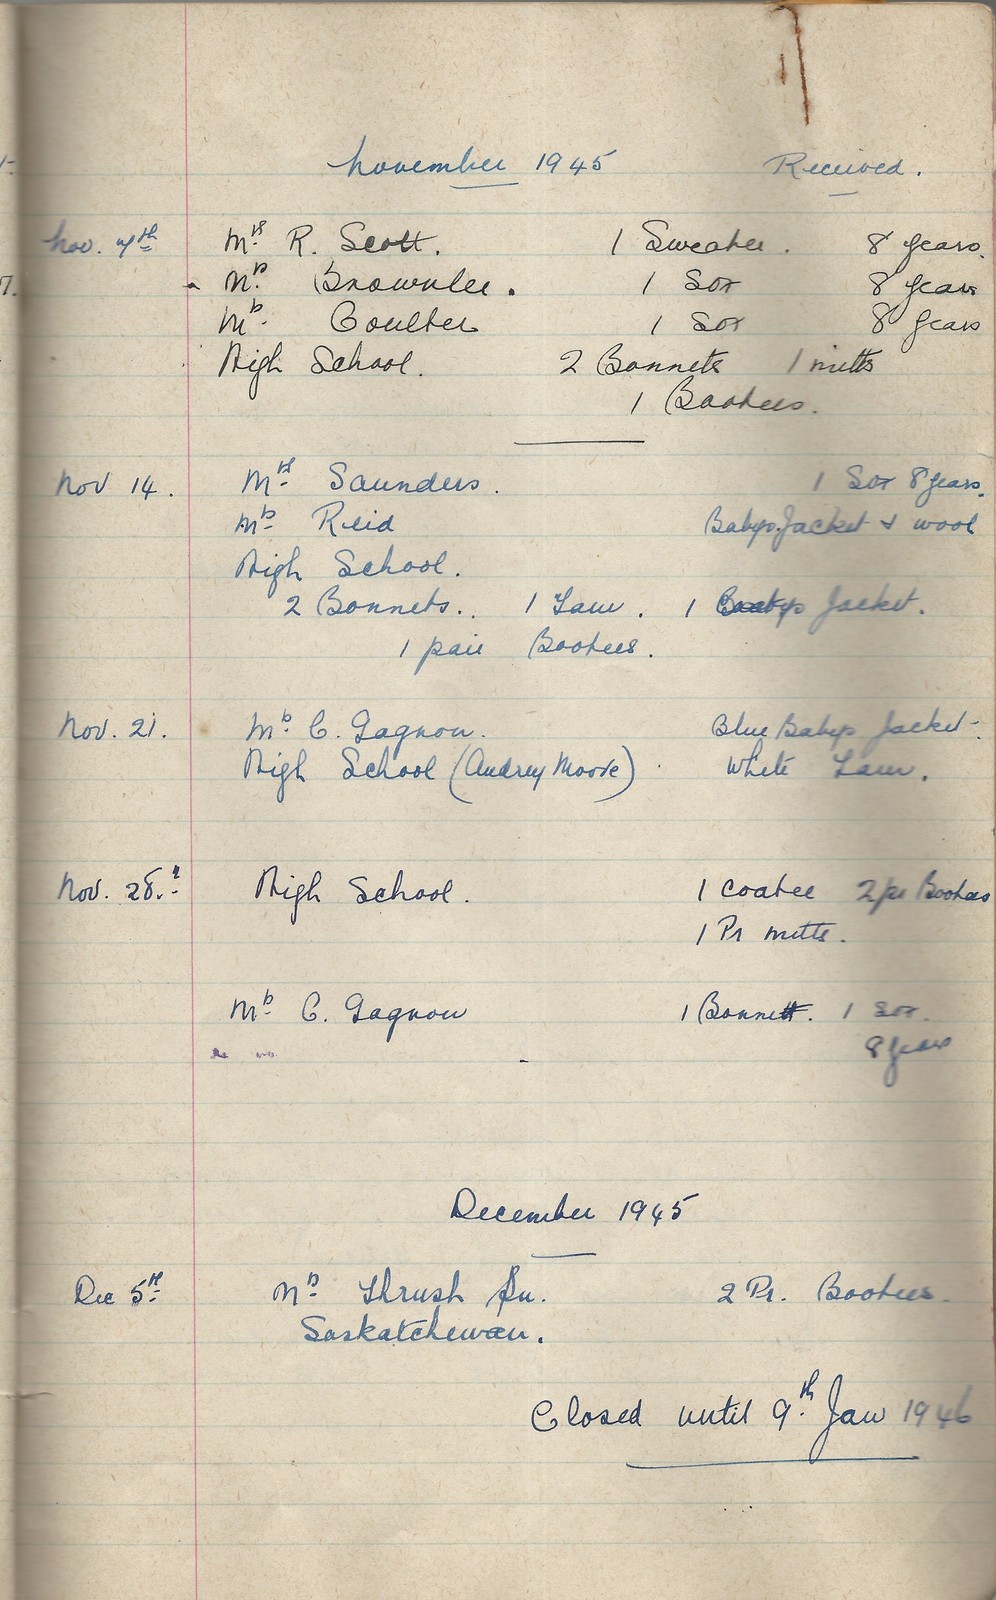 November 1945 Received.
Nov. 7th Mrs. R. Scott. 1 Sweater. 8 years.
Mrs. Brownlee. 1 Sox 8 years
Mrs. Coulter 1 Sox 8 years
High School. 2 Bonnets 1 mitts
1 Bootees.
Nov 14. Mrs. Saunders. 1 Sox 8 years.
Mrs. Reid Babys Jacket & wool
High School.
2 Bonnets. 1 Tam. 1 Babys Jacket.
1 pair Bootees.
Nov. 21. Mrs. C. Gagnon. Blue Babys Jacket.
High School (Audrey Moore) White Tam.
Nov. 28. High School. 1 coatee 2 pr Bootees
1 Pr mitts.
Mrs. C. Gagnon 1 Bonnett. 1 Sox.
8 years
December 1945
Dec 5th Mrs. Thrush Sn. 2 Pr. Bootees.
Saskatchewan.
Closed until 9th. Jan 1946